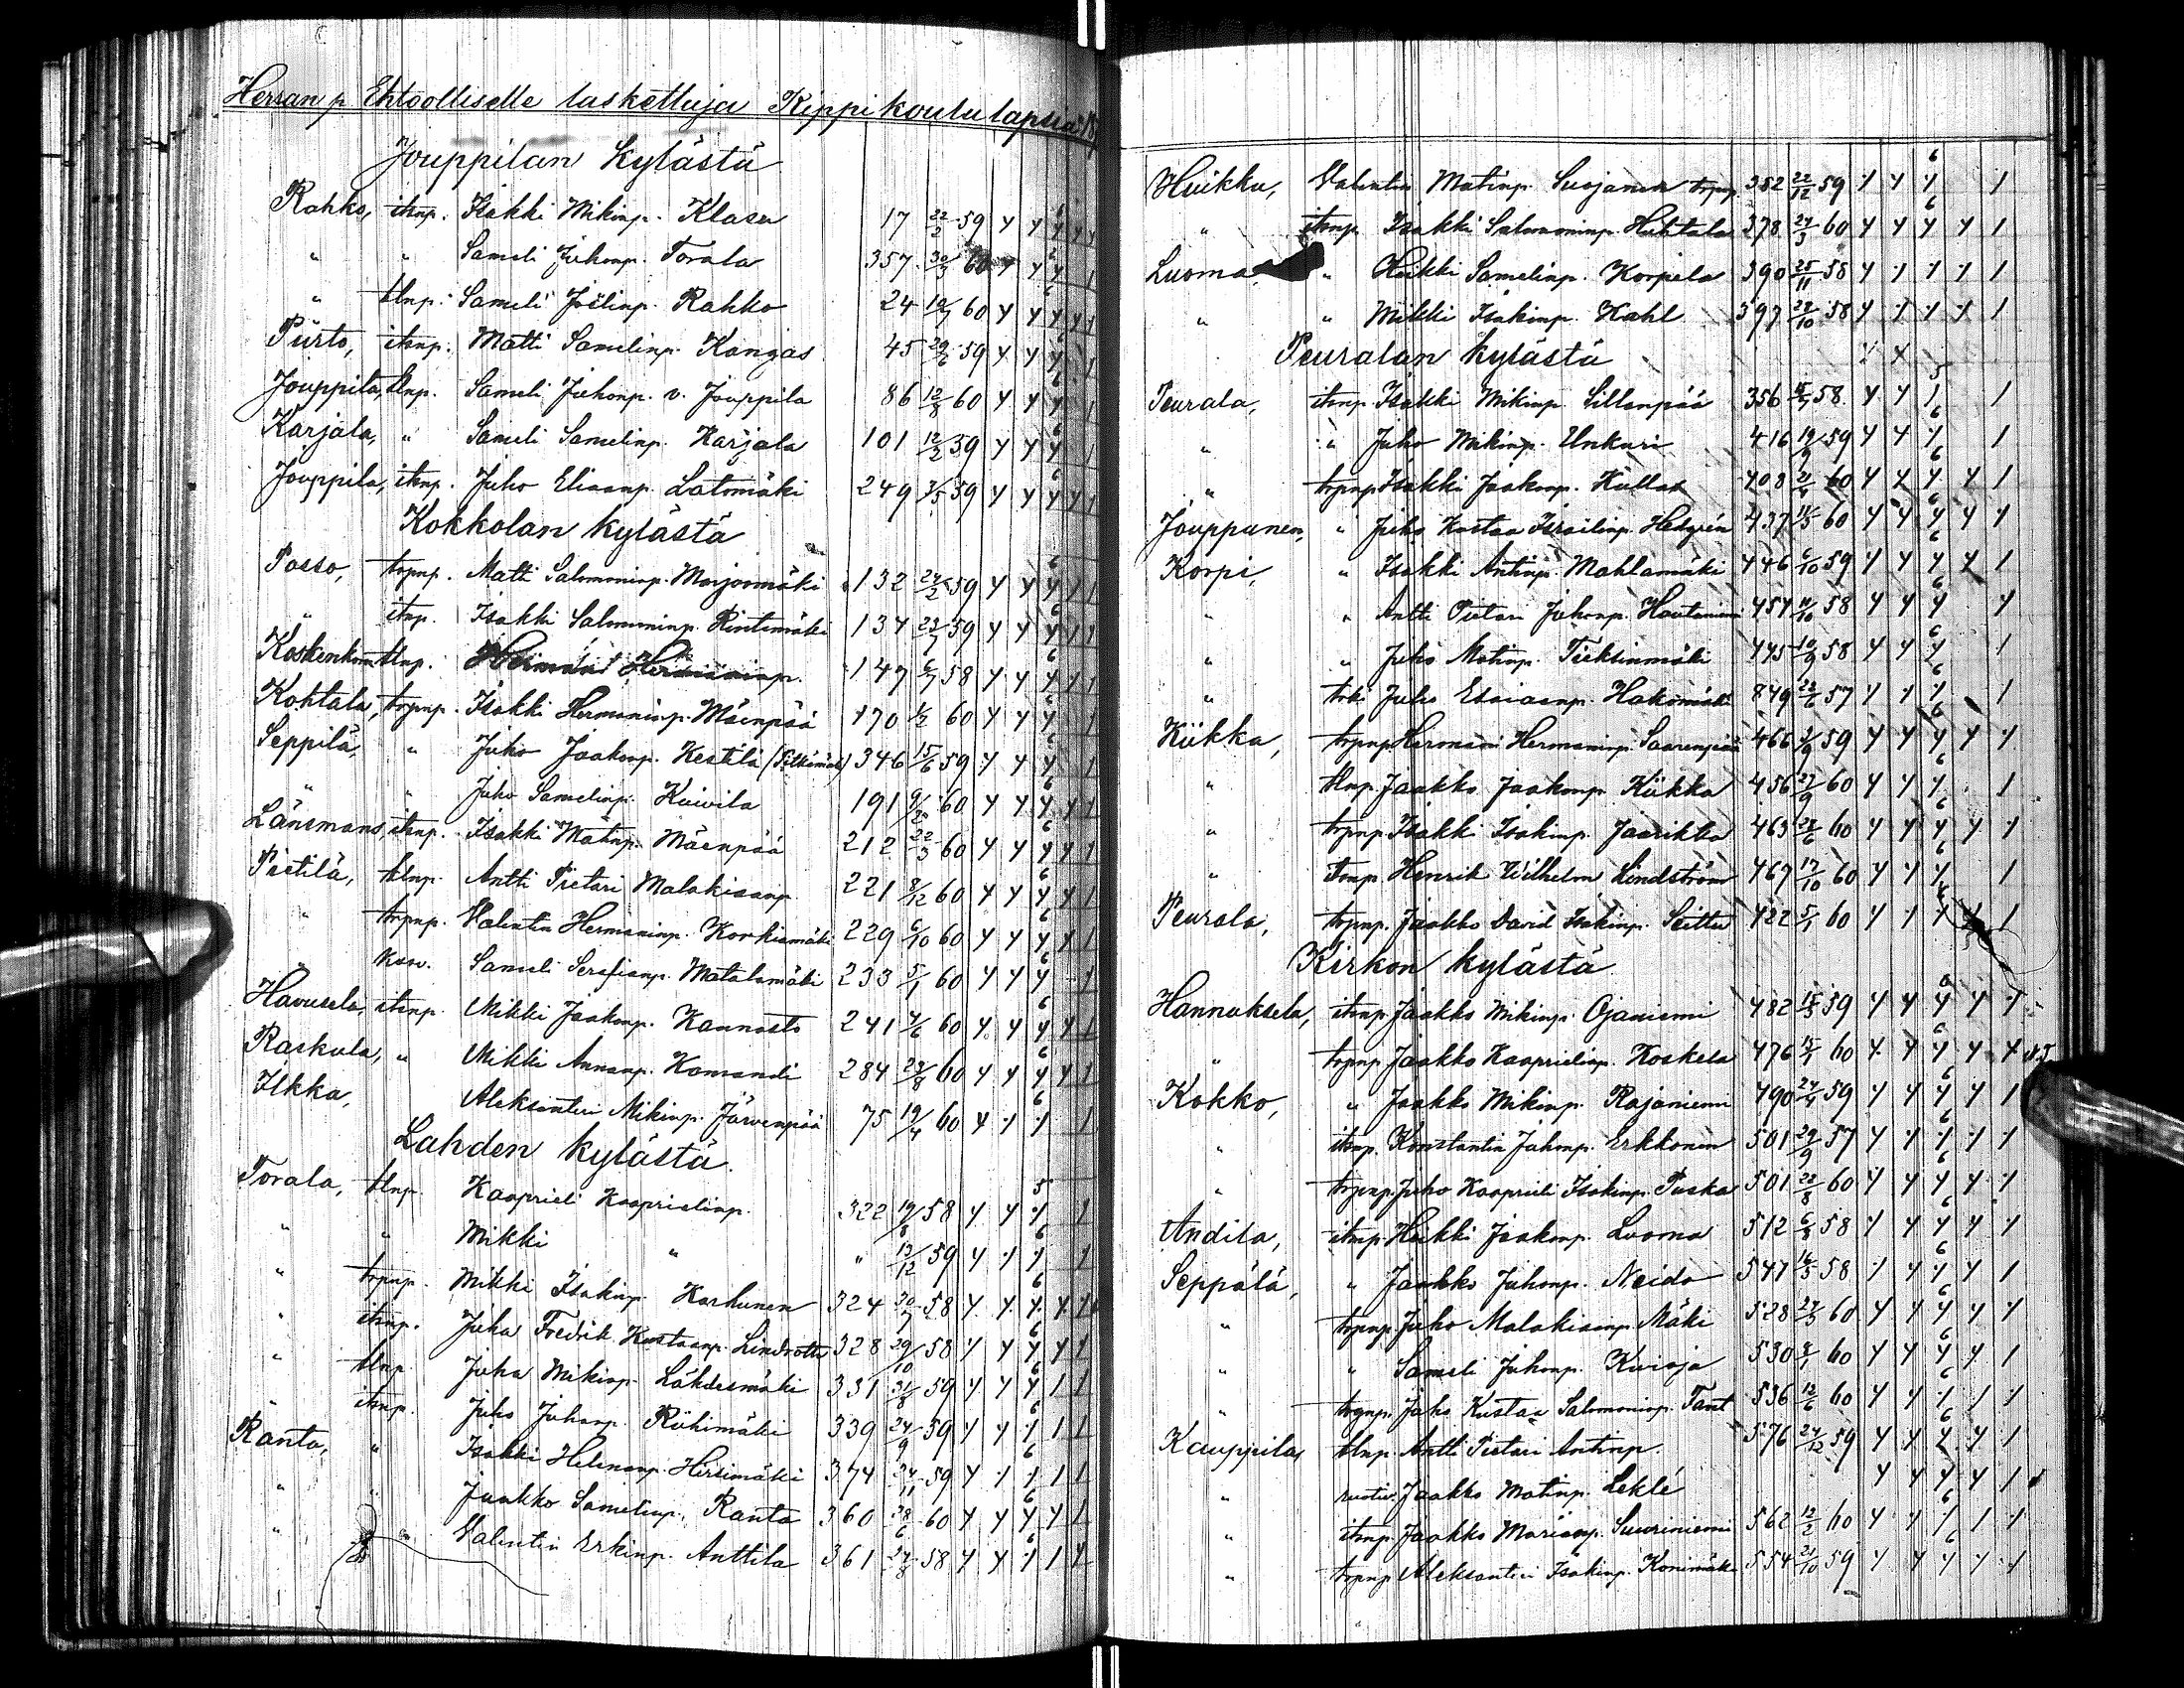 Herran p. Ehtoolliselle laskettuja Rippikoulu lapsia
Jouppilan kylästä
Rahko, itsnp. Isakki Mikinp. Klasu 17 22/2 59
" " Sameli Juhonp. Torala 357 30/3 60
" tlnp. Sameli Joelinp. Rahko 24 19/7 60
Piirto, itsnp. Matti Samelinp. Kangas 45 29/6 59
Jouppila, tlnp. Sameli Juhonp. v. Jouppila 86 12/8 60
Karjala, " Sameli Samelinp. Karjala 101 12/2 59
Jouppila, itsnp. Juho Eliaanp. Latomäki 249 3/5 59
Kokkolan kylästä
Posso, trpnp. Matti Salomoninp. Marjoomäki 132 24/2 59
" itsnp. Isakki Salomoninp. Rintamäki 134 23/7 59
tlnp. Hermanni Hermaninp. 147 6/7 58
Kohtala, trpnp. Isakki Hermaninp. Mäenpää 170 1/2 60
Seppilä, " Juho Jaakonp. Kestilä 346 15/6 59
" " Juho Samelinp. Kuivila 191 9/2 60
Länsmans, itsnp. Isakki Matinp. Mäenpää 212 22/3 60
Pietilä, tlnp. Antti Pietari Malakiaanp. 221 8/12 60
" trpnp. Valentin Hermaninp. Korkiamäki 229 6/10 60
" Sameli Serafianp. Matalamäki 233 5/1 60
Havusela, itsnp. Mikki Jaakonp. Kannosto 241 4/6 60
Raskula, " Mikki Annanp. Komandi 284 29/8 60
Ilkka, Aleksanteri Mikinp. Järvenpää 75 19/4 60
Lahden kylästä
Torala, tlnp. Kaaprieli Kaaprielinp. 322 19/8 58
" " Mikki " " 13/12 59
" trpnp. Mikki Isakinp. Karhunen 324 30/7 58
" itsnp. Juha Fredrik Kustaanp. Lindroth 328 29/10 58
" tlnp. Juha Mikinp. Lähdesmäki 331 31/8 59
" itsnp. Juho Juhonp. Riihimäki 339 24/9 59
Ranta, " Isakki Helenanp. Hirsimäki 374 24/11 59
" " Jaakko Samelinp. Ranta 360 28/6 60
" " Valentin Erkinp. Anttila 361 24/8 58
Huikku, Valentin Matinp. Suojanen trpnp. 382 22/12 59
" itsnp. Isakki Salomoninp. Huhtala 378 27/3 60
Luoma, " Heikki Samelinp. Korpela 390 25/11 58
" " Mikki Isakinp. Kahl 397 28/10 58
Peuralan kylästä
Peurala, itsnp. Isakki Mikinp. Sillanpää 356 15/7 58
" " Juho Mikinp. Unkuri 416 19/9 59
" trpnp. Isakki Jaakonp. Kullas 408 21/4 60
Jouppunen, " Juho Kustaa Israilinp. Hedgrén 437 11/5 60
Korpi, " Isakki Antinp. Mahlamäki 446 6/10 59
" " Antti Pietari Juhonp. Hautaniemi 454 11/10 58
" " Juho Matinp. Tieksinmäki 445 10/9 58
" Juho Esaiaanp. Hakomäki 849 22/6 57
Kiikka, trpnp. Hermanni Hermaninp. Saarenpää 466 3/9 59
" tlnp. Jaakko Jaakonp. Kiikka 456 27/9 60
" trpnp. Isakki Isakinp. Jaarikka 463 23/6 60
" Henrik Wilhelm Lindström 467 17/10 60
Peurala, trpnp. Jaakko David Isakinp. Seittu 422 5/1 60
Kirkon kylästä
Hannuksela, itsnp. Jaakko Mikinp. Ojaniemi 482 15/3 59
" trpnp. Jaakko Kaaprielinp. Koskela 476 15/1 60
Kokko, " Jaakko Mikinp. Rajaniemi 490 24/4 59
" itsnp. Konstantin Juhonp. Erkkonen 501 29/9 57
" trpnp. Juho Kaaprieli Isakinp. Puska 501 28/8 60
Andila, itsnp. Heikki Jaakonp. Luoma 512 6/8 58
Seppälä, " Jaakko Juhonp. Neido 547 16/3 58
" trpnp. Juho Malakiaanp. Mäki 528 27/3 60
" " Sameli Juhonp. Kivioja 530 8/1 60
" trpnp. Juho Kustaa Salomoninp. Fant 536 12/6 60
Kauppila, tlnp. Antti Pietari Antinp. 576 24/12 59
" Jaakko Matinp. Leklé
" itsnp. Jaakko Marianp. Suuriniemi 562 12/2 60
" trpnp. Aleksanteri Isakinp. Konimäki 554 21/10 59